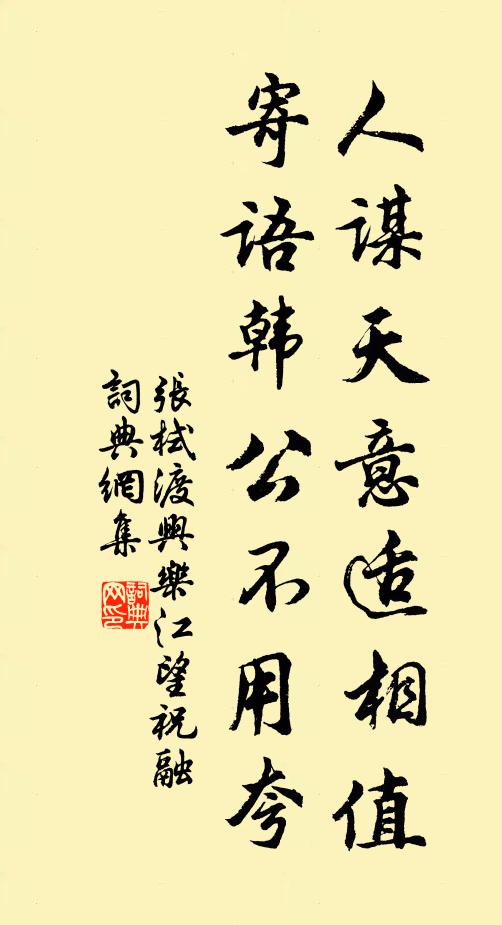 人谋天意适相值
寄语韩公不用夸
張栻渡興樂江望祝融
詞典網集
詞典網印